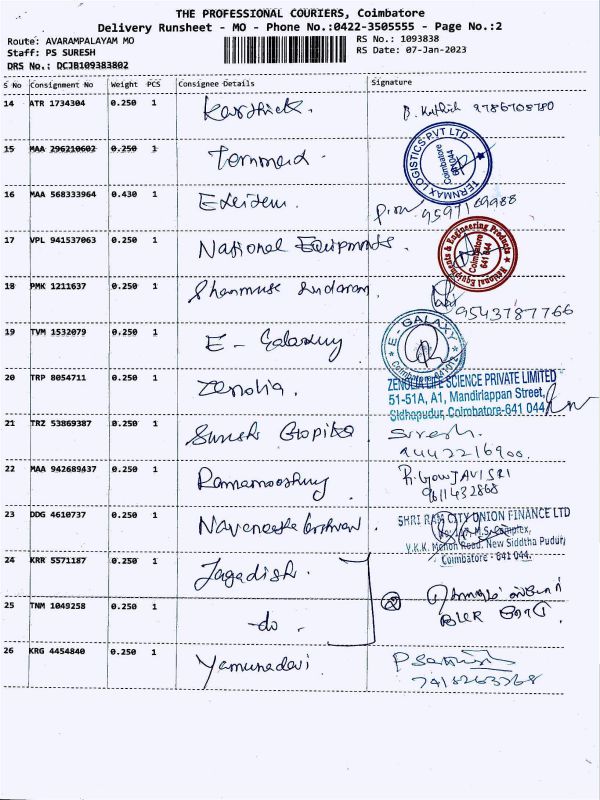 THE PROFESSIONAL COURIERS, Coimbatore
Delivery Runsheet - MO - Phone No.:0422-3505555 - Page No.:2
Route: AVARAMPALAYAM MO
RS No.: 1093838
Staff: PS SURESH
RS Date: 07-Jan-2023
DRS No.: DCJB109383802
S No Consignment No Weight PCS Consignee Details Signature
14 ATR 1734304 0.250 1 Karthick. 9786708780
15 MAA 296210602 0.250 1
TERNMAX LOGISTICS PVT LTD
Coimbatore
641044
16 MAA 568333964 0.430 1 9597169988
17 VPL 941537063 0.250 1 National Equipments.
Coimbatore
641 044
18 PMK 1211637 0.250 1 Shanmuga Sundaram 9543787766
19 TVM 1532079 0.250 1 E - Galaxy
E - GALAXY
20 TRP 8054711 0.250 1 Zenolia.
ZENOLIA LIFE SCIENCE PRIVATE LIMITED
51-51A, A1, Mandirlappan Street,
Sidhapudur, Coimbatore-641 044
21 TRZ 53869387 0.250 1 Suresh Gopika Suresh.
9442216900
22 MAA 942689437 0.250 1 Ramamoorthy R. Gowjavisri
9611432868
23 DDG 4610737 0.250 1 Navaneethakrishnan.
SHRI RAM CITY UNION FINANCE LTD
V.K.K. Menon Road, New Siddha Pudur,
Coimbatore - 641 044.
24 KRR 5571187 0.250 1 Jagadish.
25 TNM 1049258 0.250 1 -do-
26 KRG 4454840 0.250 1 Yamunadevi
7418263768